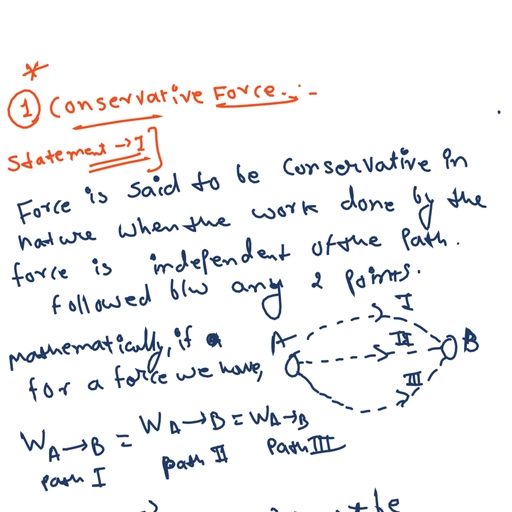 *
① Conservative Force :-
Statement → I]
Force is said to be Conservative in
nature when the work done by the
force is independent of the Path.
followed b/w any 2 points.
mathematically, if
for a force we have,
A I II III B
W A→B = W A→B = W A→B
path I path II Path III
the